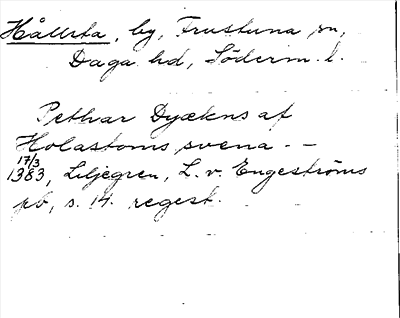 Hållsta, by, Frustuna sn,
Daga hd, Söderm. l.
Pethar Dyækns af
Holastoms svena. –
17/3
1383, Liljegren, L. v. Engeströms
pb, s. 14. regest.